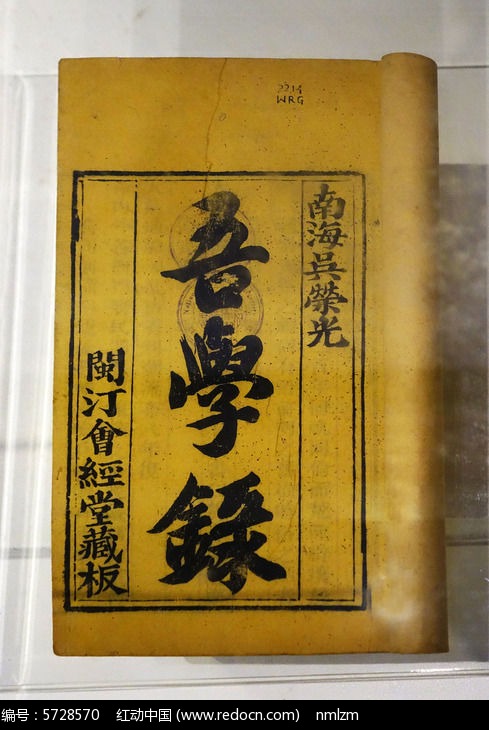 2214
WRG
南海吳榮光
吾學錄
閩汀會經堂藏板
编号：5728570 红动中国 (www.redocn.com) nmlzm